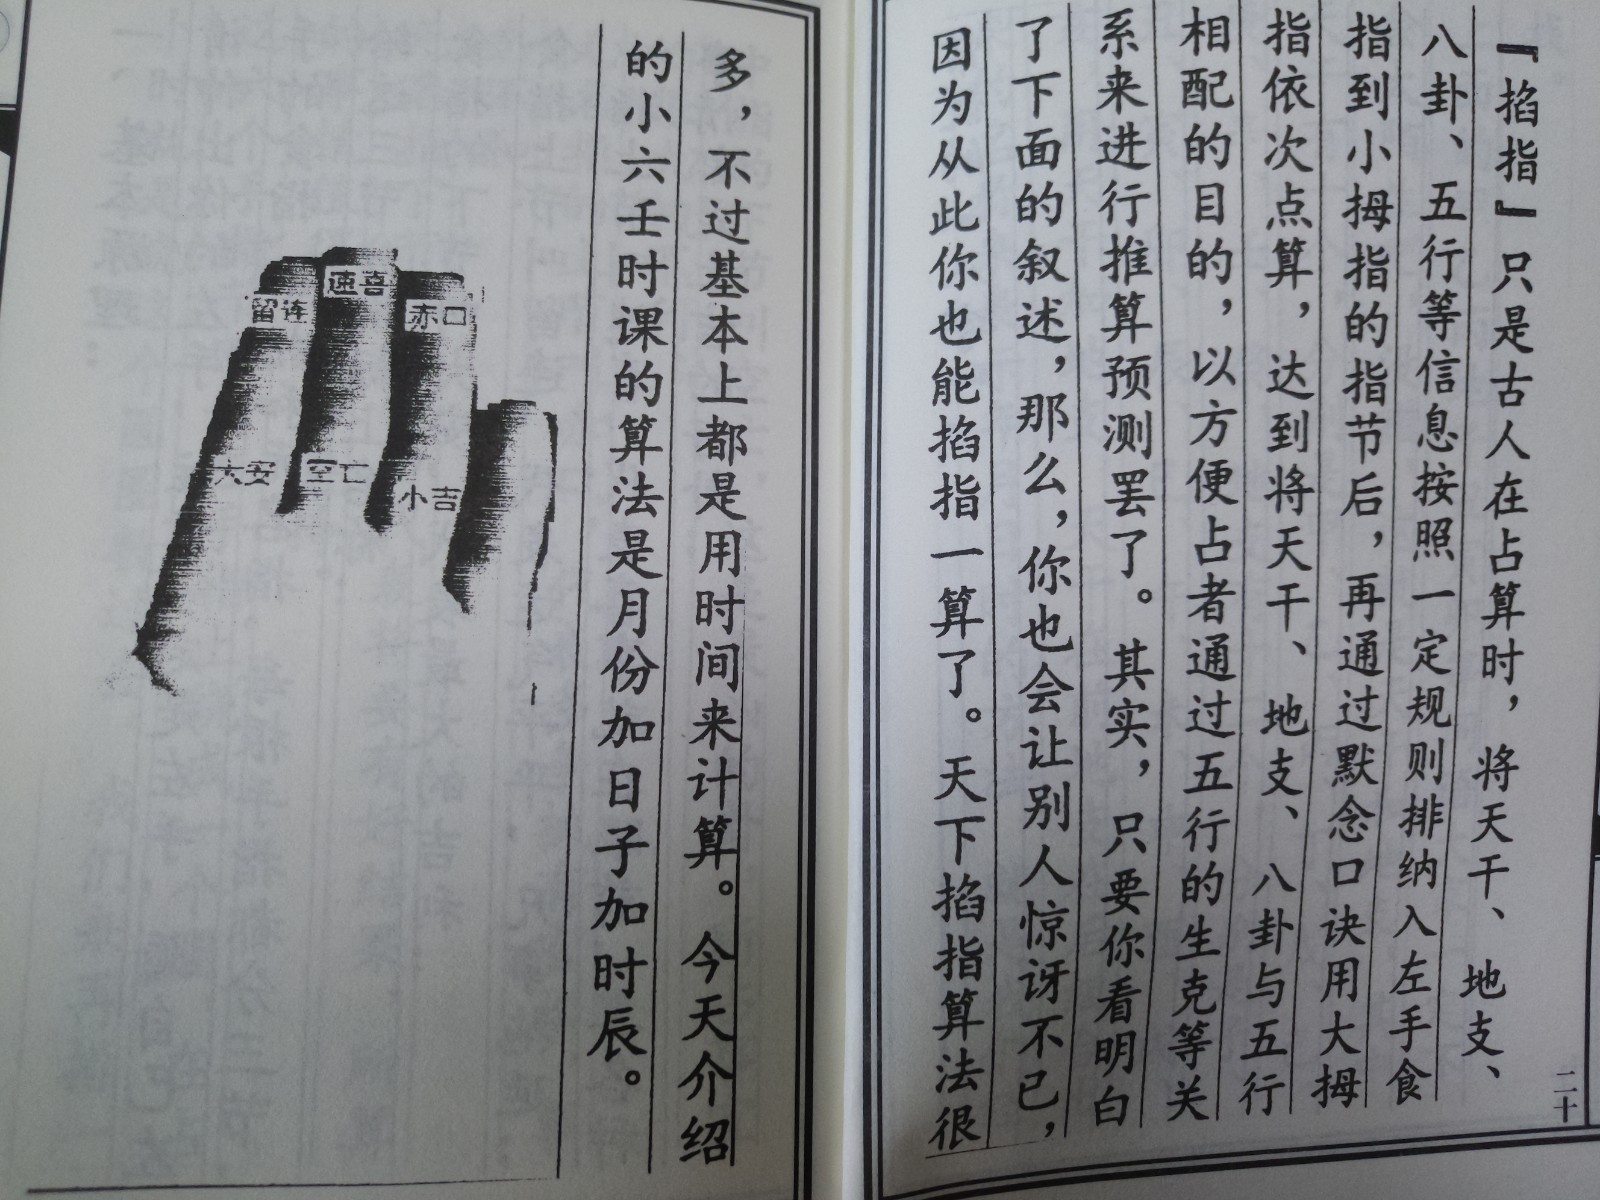 『掐指』只是古人在占算时，将天干、地支、
八卦、五行等信息按照一定规则排纳入左手食
指到小拇指的指节后，再通过默念口诀用大拇
指依次点算，达到将天干、地支、八卦与五行
相配的目的，以方便占者通过五行的生克等关
系来进行推算预测罢了。其实，只要你看明白
了下面的叙述，那么，你也会让别人惊讶不已，
因为从此你也能掐指一算了。天下掐指算法很
二十
多，不过基本上都是用时间来计算。今天介绍
的小六壬时课的算法是月份加日子加时辰。
速喜
留连
赤口
大安
空亡
小吉